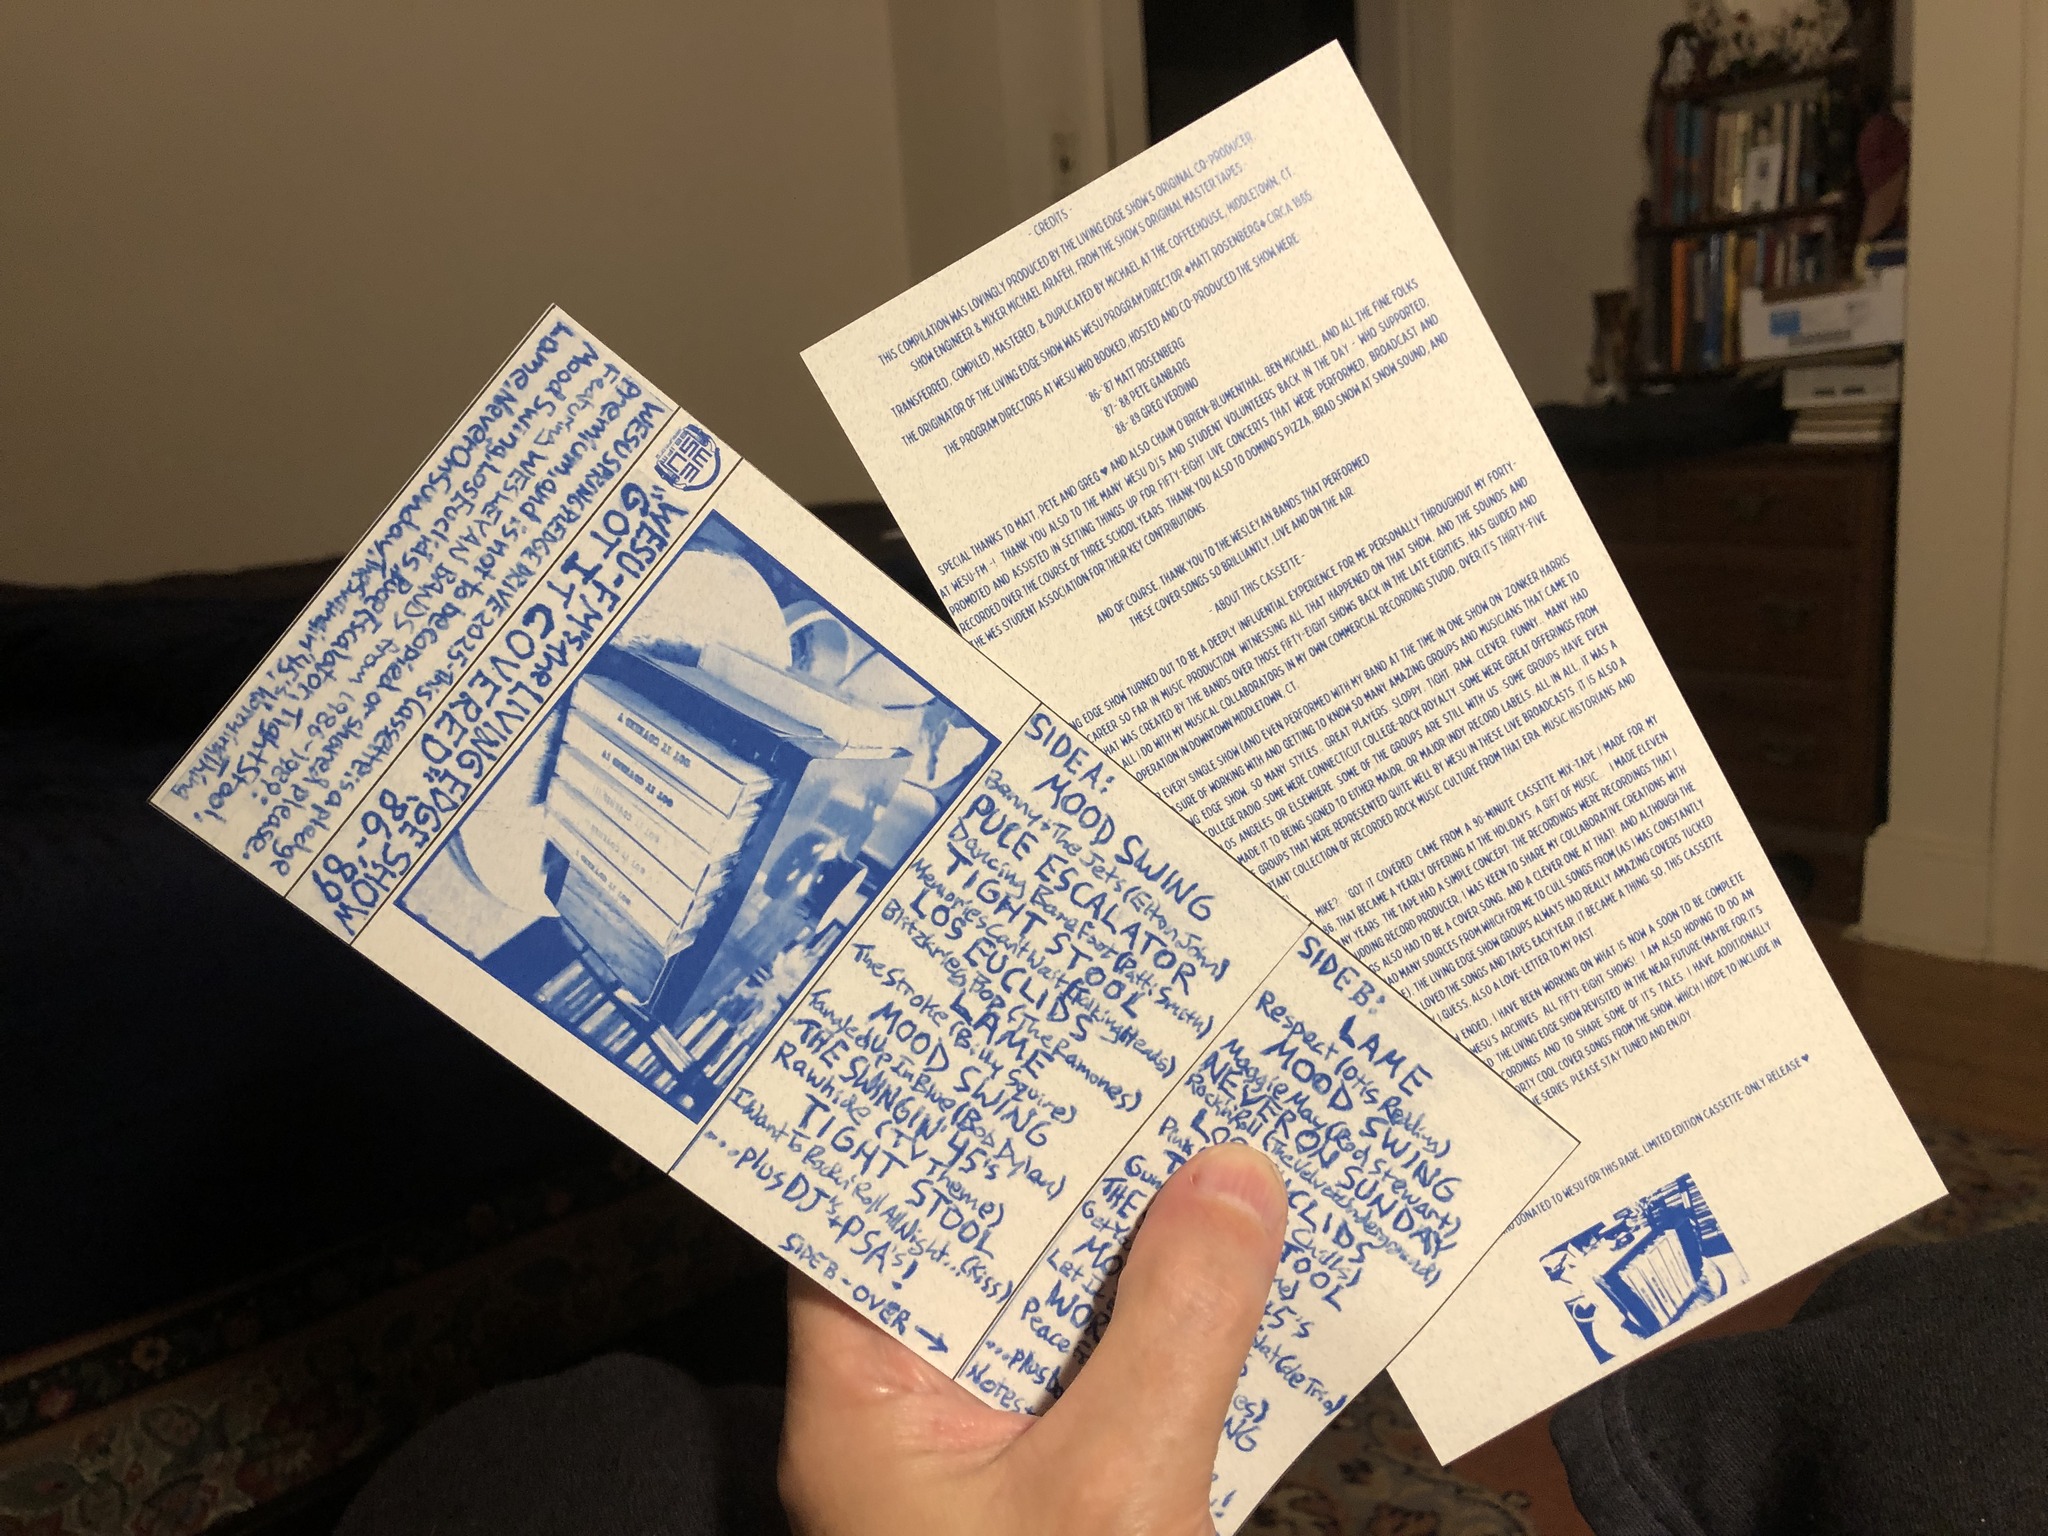 WESU SPRING PLEDGE DRIVE 2025 - this cassette is a pledge
Premium, and is not to be copied or shared please.
Featuring WESLEYAN BANDS from 1986-1989:
Mood Swing, Los Euclids, Puce Escalator, Tight Stool,
Lame, Never On Sunday, The Swingin' 45's, Worm
WESU
WESU-FM's the LIVING EDGE SHOW
"GOT IT COVERED" '86-'89
GOT IT COVERED
GOT IT COVERED
SIDE A:
MOOD SWING
Benny + The Jets (Elton John)
PUCE ESCALATOR
Dancing Barefoot (Patti Smith)
TIGHT STOOL
Memories Can't Wait (Talking Heads)
LOS EUCLIDS
Blitzkrieg Bop (The Ramones)
LAME
The Stroke (Billy Squire)
MOOD SWING
Tangled Up In Blue (Bob Dylan)
THE SWINGIN' 45's
Rawhide (TV Theme)
TIGHT STOOL
I Want To Rock n Roll All Night... (Kiss)
...plus DJ's + PSA's!
SIDE B - OVER →
SIDE B:
LAME
Respect (Otis Redding)
MOOD SWING
Maggie May (Rod Stewart)
NEVER ON SUNDAY
Rock n Roll (The Velvet Underground)
LOS EUCLIDS
Pink Chills)
T TOOL
Gun
THE 45's
Get Yo Nat Cole Trio)
MOO
Let I es)
WOR NG
Peace
...plus bo
Notes
- CREDITS -
THIS COMPILATION WAS LOVINGLY PRODUCED BY THE LIVING EDGE SHOW'S ORIGINAL CO-PRODUCER,
SHOW ENGINEER & MIXER MICHAEL ARAFEH, FROM THE SHOW'S ORIGINAL MASTER TAPES -
TRANSFERRED, COMPILED, MASTERED, & DUPLICATED BY MICHAEL AT THE COFFEEHOUSE, MIDDLETOWN, CT.
THE ORIGINATOR OF THE LIVING EDGE SHOW WAS WESU PROGRAM DIRECTOR ♦MATT ROSENBERG♦ CIRCA 1985.
THE PROGRAM DIRECTORS AT WESU WHO BOOKED, HOSTED AND CO-PRODUCED THE SHOW WERE:
'86-'87 MATT ROSENBERG
'87-'88 PETE GANBARG
'88-'89 GREG VERDINO
SPECIAL THANKS TO MATT, PETE AND GREG ♥ AND ALSO CHAIM O'BRIEN-BLUMENTHAL, BEN MICHAEL, AND ALL THE FINE FOLKS
AT WESU-FM -!. THANK YOU ALSO TO THE MANY WESU DJ'S AND STUDENT VOLUNTEERS BACK IN THE DAY - WHO SUPPORTED,
PROMOTED AND ASSISTED IN SETTING THINGS UP FOR FIFTY-EIGHT LIVE CONCERTS THAT WERE PERFORMED, BROADCAST AND
RECORDED OVER THE COURSE OF THREE SCHOOL YEARS. THANK YOU ALSO TO DOMINO'S PIZZA, BRAD SNOW AT SNOW SOUND, AND
THE WES STUDENT ASSOCIATION FOR THEIR KEY CONTRIBUTIONS.
AND OF COURSE, THANK YOU TO THE WESLEYAN BANDS THAT PERFORMED
THESE COVER SONGS SO BRILLIANTLY, LIVE AND ON THE AIR.
- ABOUT THIS CASSETTE -
NG EDGE SHOW TURNED OUT TO BE A DEEPLY INFLUENTIAL EXPERIENCE FOR ME PERSONALLY THROUGHOUT MY FORTY-
CAREER SO FAR IN MUSIC PRODUCTION. WITNESSING ALL THAT HAPPENED ON THAT SHOW, AND THE SOUNDS AND
HAT WAS CREATED BY THE BANDS OVER THOSE FIFTY-EIGHT SHOWS BACK IN THE LATE EIGHTIES, HAS GUIDED AND
ALL I DO WITH MY MUSICAL COLLABORATORS IN MY OWN COMMERCIAL RECORDING STUDIO, OVER IT'S THIRTY-FIVE
OPERATION IN DOWNTOWN MIDDLETOWN, CT.
EVERY SINGLE SHOW (AND EVEN PERFORMED WITH MY BAND AT THE TIME IN ONE SHOW ON ZONKER HARRIS
SURE OF WORKING WITH AND GETTING TO KNOW SO MANY AMAZING GROUPS AND MUSICIANS THAT CAME TO
NG EDGE SHOW. SO MANY STYLES. GREAT PLAYERS. SLOPPY, TIGHT, RAW, CLEVER, FUNNY... MANY HAD
COLLEGE RADIO. SOME WERE CONNECTICUT COLLEGE-ROCK ROYALTY. SOME WERE GREAT OFFERINGS FROM
OS ANGELES OR ELSEWHERE. SOME OF THE GROUPS ARE STILL WITH US. SOME GROUPS HAVE EVEN
MADE IT TO BEING SIGNED TO EITHER MAJOR, OR MAJOR INDY RECORD LABELS. ALL IN ALL, IT WAS A
GROUPS THAT WERE REPRESENTED QUITE WELL BY WESU IN THESE LIVE BROADCASTS. IT IS ALSO A
TANT COLLECTION OF RECORDED ROCK MUSIC CULTURE FROM THAT ERA. MUSIC HISTORIANS AND
MIKE?.. 'GOT IT COVERED' CAME FROM A 90-MINUTE CASSETTE MIX-TAPE I MADE FOR MY
86, THAT BECAME A YEARLY OFFERING AT THE HOLIDAYS, A GIFT OF MUSIC... I MADE ELEVEN
NY YEARS. THE TAPE HAD A SIMPLE CONCEPT: THE RECORDINGS WERE RECORDINGS THAT I
UDDING RECORD PRODUCER, I WAS KEEN TO SHARE MY COLLABORATIVE CREATIONS WITH
GS ALSO HAD TO BE A COVER SONG, AND A CLEVER ONE AT THAT! AND ALTHOUGH THE
AD MANY SOURCES FROM WHICH FOR ME TO CULL SONGS FROM (AS I WAS CONSTANTLY
E), THE LIVING EDGE SHOW GROUPS ALWAYS HAD REALLY AMAZING COVERS TUCKED
LOVED THE SONGS AND TAPES EACH YEAR. IT BECAME A THING. SO, THIS CASSETTE
I GUESS, ALSO A LOVE-LETTER TO MY PAST.
ENDED, I HAVE BEEN WORKING ON WHAT IS NOW A SOON TO BE COMPLETE
WESU'S ARCHIVES. ALL FIFTY-EIGHT SHOWS! I AM ALSO HOPING TO DO AN
D THE LIVING EDGE SHOW REVISITED IN THE NEAR FUTURE (MAYBE FOR IT'S
CORDINGS AND TO SHARE SOME OF IT'S TALES. I HAVE ADDITIONALLY
ORTY COOL COVER SONGS FROM THE SHOW, WHICH I HOPE TO INCLUDE IN
E SERIES. PLEASE STAY TUNED AND ENJOY.
DONATED TO WESU FOR THIS RARE, LIMITED EDITION CASSETTE-ONLY RELEASE ♥